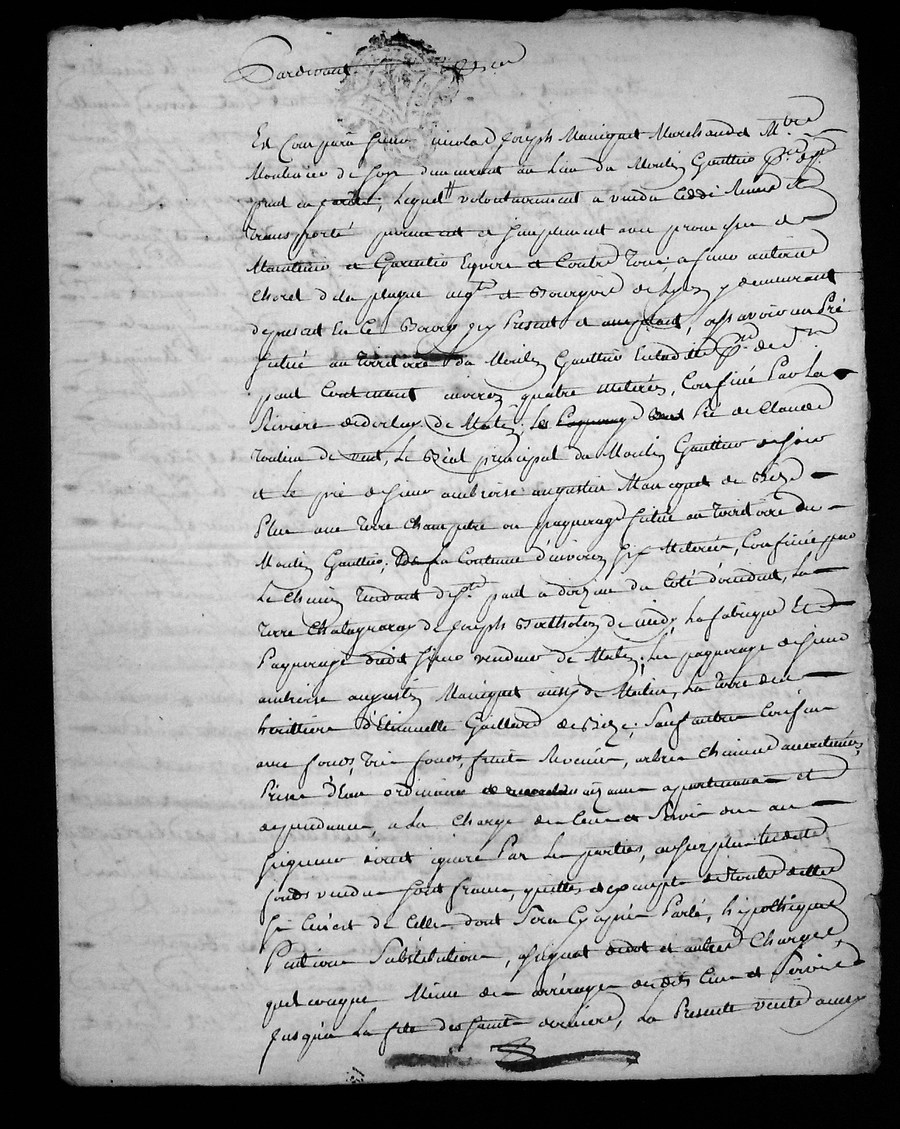 Pardevant
Est Comparu Sieur nicolas Joseph Maniquet Marchand Mtre
Moulinier de soye demeurant au Lieu du Moulin Gauttier
paul en , Lequel volontairement a vendu Ceddé Remis et
transporté purement et simplement avec promesse de
Maintenir et Garentir Envers et Contre tous, a sieur antoine
Chorel de la plagne neg.t et Bourgeois de Lyon y demeurant
de present En Ce Bourg icy Present et acceptant, assavoir un Pré
situé au territoire du Moulin Gauttier
paul Contenant environ quatre Meterées, Confiné Par La
Riviere de de Matin, Pré de Claude
de vent, Le Béal principal du Moulin Gauttier de soir
et Le pré de sieur ambroise augustin Maniquet de Bize
Plus une terre Champetre ou paquerage situé au territoire du
Moulin Gauttier, de La Contenue d'environ six Meterées, Confinée par
Le Chemin tendant de St. paul a du Coté d'occident, La
terre de Joseph Bertholon de midy, La fabrique Et
Paquerage dudit sieur vendeur de Matin, Le paquerage de sieur
ambroise augustin Maniquet aussy de Matin, La terre des
heritiers d'Etiennette Gaillard de Bize, Sauf autres Confins
avec fonds, tres fonds, fruits Revenus, arbres
Prises d'Eau ordinaires aizances apartenances et
dependances, a La Charge des Cens et Servis dus au
seigneur direct ignoré Par Les parties, au surplus Lesdits
fonds vendus sont francs, quittes et exempts de toutes dettes
si Ce n'est de Celles dont Sera Cy après Parlé, hipothéques
Pentions Substitutions, assignat de dot et autres Charges
quelconques Même des arrérages desdits Cens et Servis
Jusqu'a La fête des saints derniere, La Presente vente aussy